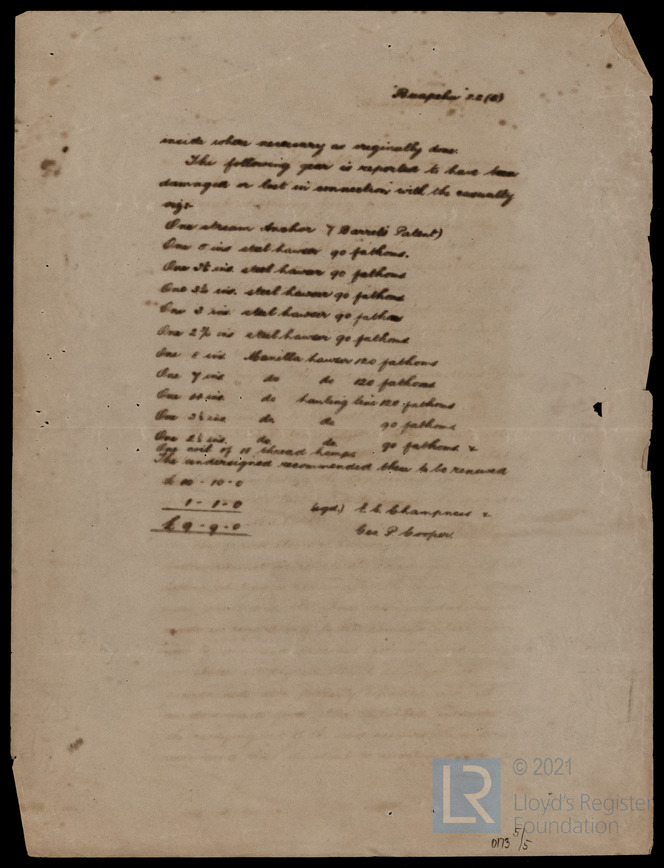 "Ruapehu" 22(8)
inside where necessary as originally done.
The following gear is reported to have been
damaged or lost in connection with the casualty
viz:-
One stream Anchor 7 Barrels Patent)
One 5 ins steel hawser 90 fathoms.
One 3½ ins. steel hawser 90 fathoms
One ins. steel hawser 90 fathoms
One 3 ins steel hawser 90 fathoms
One 2¾ ins steel hawser 90 fathoms
One ins Manilla hawser 120 fathoms
One 7 ins do do 120 fathoms
One ins. do hauling line 120 fathoms
One 3½ ins do do 90 fathoms
One 2½ ins. do do 90 fathoms &
One coil of 18 thread hemp
The undersigned recommended them to be renewed
£10-10-0
1-1-0 (sgd.) Champness &
£9-9-0 Geo. P Cooper.
© 2021
LR Lloyd's Register
Foundation
0173 5/5